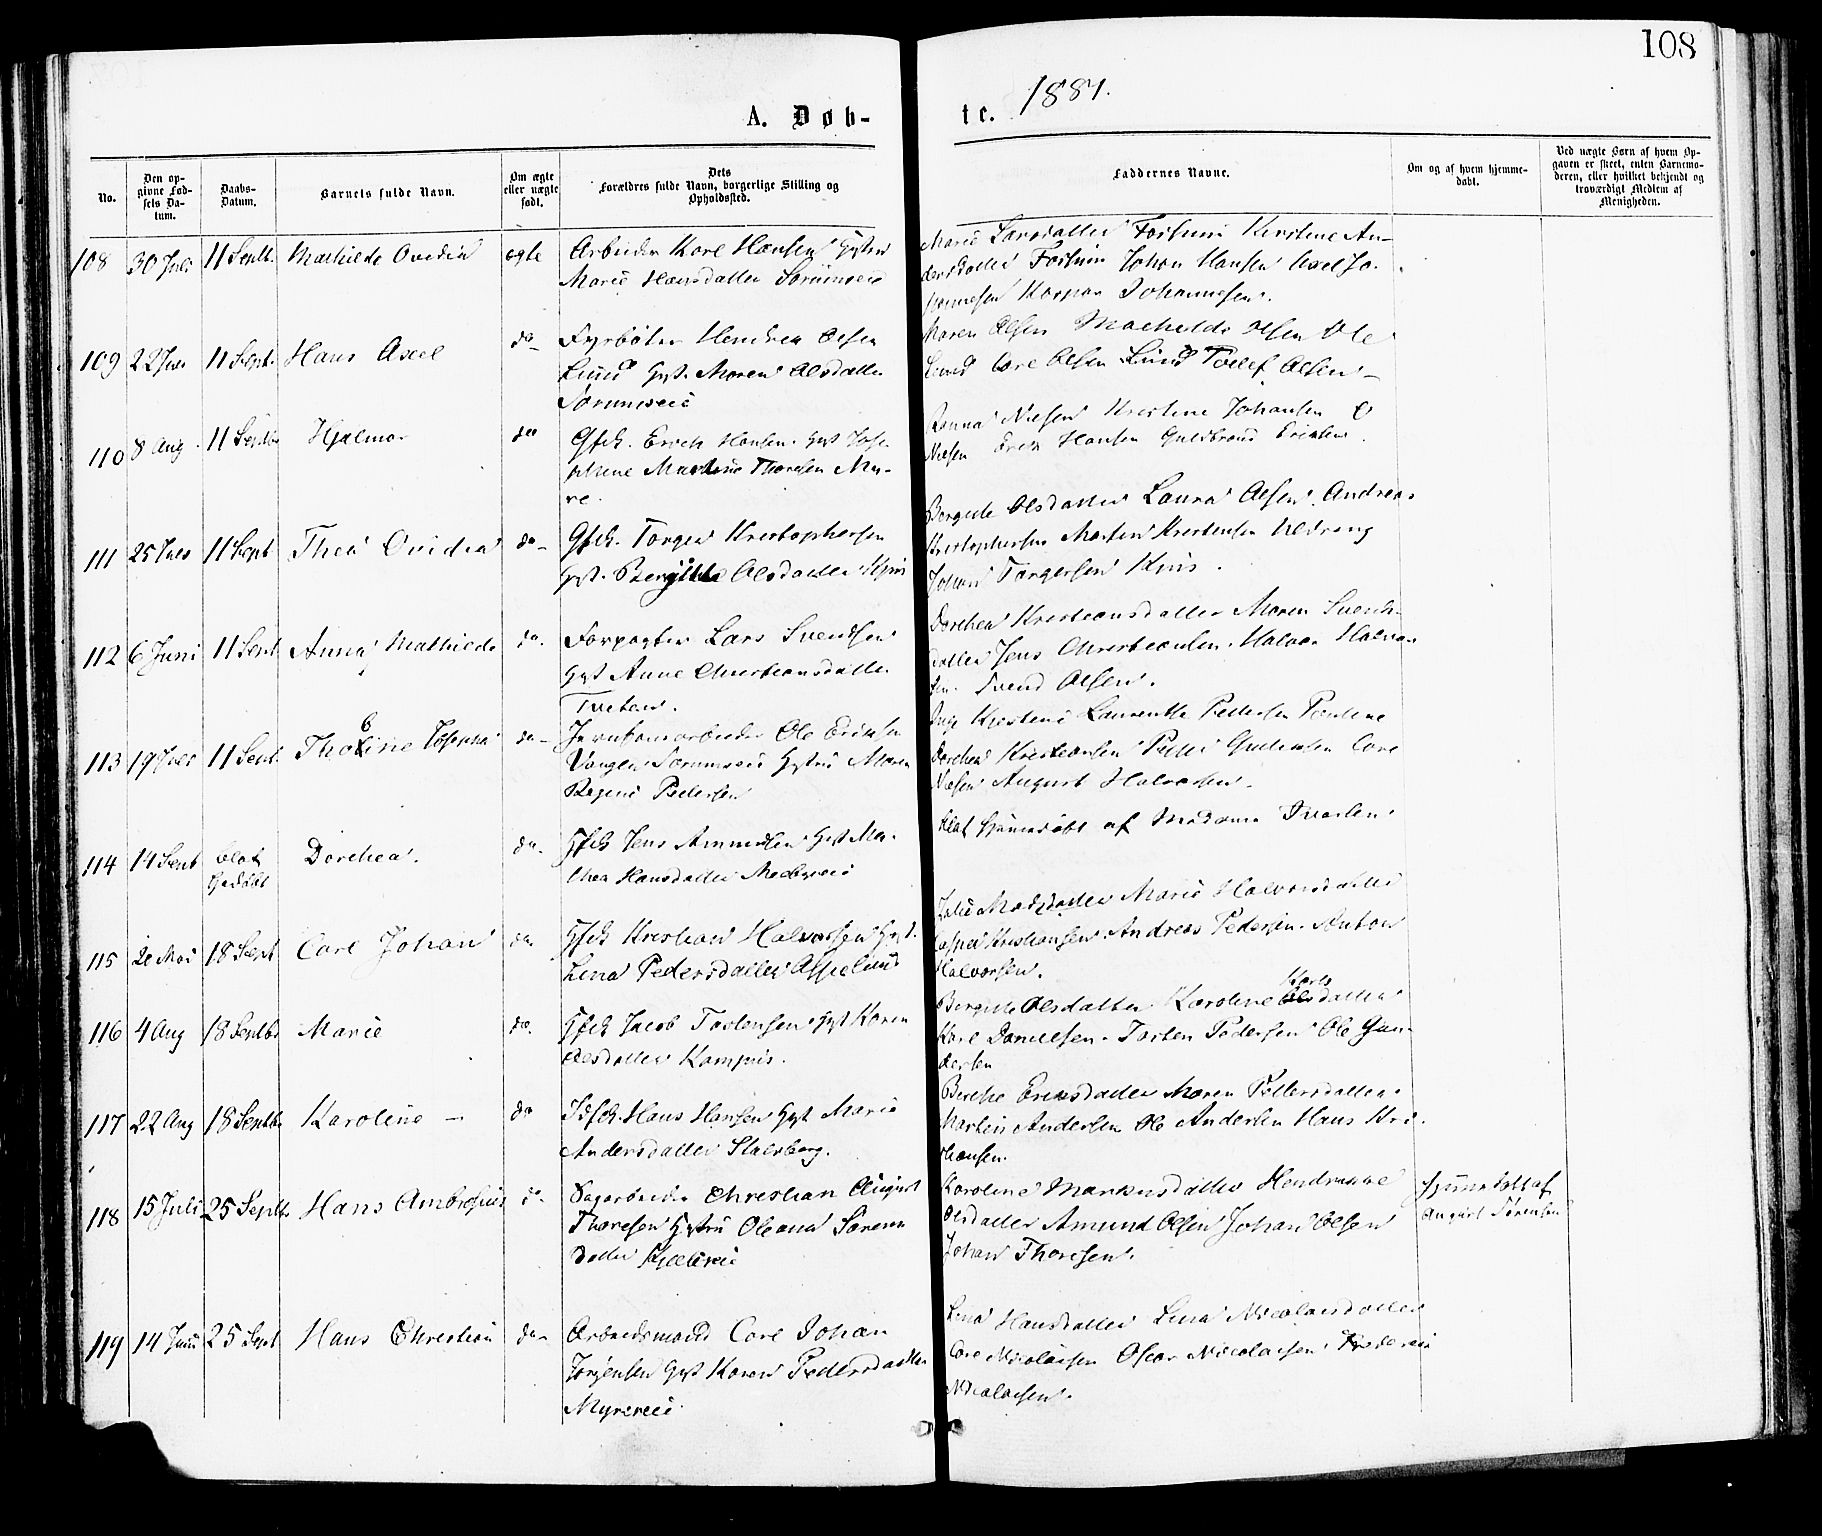 108
1881.
A. Døb-
te.
No.
Den op-
givne Fød-
sels Da-
tum.
Daabs-
Datum.
Barnets fulde Navn.
Om ægte
eller uægte
født.
Dets
Forældres fulde Navn, borgerlige Stilling og
Opholdssted.
Faddernes Navne.
Om og af hvem hjemme-
døbt.
Ved uægte Børn af hvem Op-
gaven er skeet, enten Barnemo-
deren, eller hvilket bekjendt og
troværdigt Medlem af
Menigheden.
108 30 Juli 11 Septb. Mathilde Ovedia ægte
Arbeider Karl Hansen Hustru
Marie Hansdatter Sørumveie
Marie Larsdatter Fossum Kirstine An-
dersdatter Fossum Johan Hansen Axel Jo-
hannesen Kaspar Johannesen.
109 22 Juni 11 Sept. Hans Axel do
Fyrbøter Hendrea Olsen
Lund Hst. Maren Olsdatter
Sørumveie
Maren Olsen Mathilde Olsen Ole
Lund Carl Olsen Lund Tollef Olsen
110 8 Aug 11 Septbr Hjalmar do
Gfd. Erick Hansen Hust Jose-
phine Martine Thoresen My-
re.
Anna Nielsen Kristine Johansen O
Nielsen Erik Hansen Guldbrand Eriksen.
111 25 Juli 11 Sept Thea Ovidia do
Gfd. Torger Kristophersen
Hst. Bergitte Olsdatter Kjiis
Bergitte Olsdatter Laura Olsen. Andreas
Kristophersen Martin Kristensen
Johan Torgersen Kiis.
112 6 Juni 11 Sept Anna Mathilde do.
Forpagter Lars Svendsen
Hust Anne Christiansdatter
Tveten.
Dorthea Kristiansdatter Maren Svends-
datter Jens Christensen. Halvor Halvor-
sen. Svend Olsen.
113 19 Juli 11 Sept. Thobine Josefina do
Jernbanearbeider Ole Eriksen
Vangen Sørumveie Hustru Maren
Regine Pedersen
Inge Kjerstine Laurentse Pedersen Pauline
Dorthea Kristiansen Peder Gudensen Carl
Nilsen August Halvorsen.
114 14 Sept blot
Hjdøbt Dorthea. do.
Gfd. Jens Amundsen Hust Ma-
thea Hansdatter
blot hjemmedøbt af Madame
115 20 Mai 18 Sept Carl Johan do.
Gfd Kristian Halvorsen Hust.
Lina Pedersdatter Aspelund
Julie Madsdatter Marie Halvorsdatter
Casper Kristiansen. Andreas Pedersen. Anton
Halvorsen.
116 4 Aug 18 Septbr Marie do.
Gfd Jacob Torstensen Hust Karen
Olsdatter Kampiis.
Bergitte Olsdatter Karoline Karls
datter
Karl Danielsen. Torsten Pedersen Ole Gun-
dersen
117 22 Aug 18 Septbr Karoline — do
Hans Hansen Hust Marie
Andersdatter Stalsberg.
Berthe Eriksdatter Maren Pettersdatter
Martin Andersen Ole Andersen Hans Kri-
stiansen.
118 15 Juli 25 Septbr Hans Ambrosius do
Sagarbeider Christian August
Thoresen Hustru Oleana Sørens
datter
Karoline Markusdatter Hendrikke
Olsdatter Amund Olsen Johan Olsen
Johan Thoresen.
Hjemmedøbt af
August Sørensen
119 14 Juni 25 Sept Hans Christian do
Arbeidsmand Carl Johan
Jørgensen Hust Karen Pedersdatter
Myreveie
Lina Hansdatter Lina Nicolaisdatter
Carl Nicolaisen Oscar Nicolaisen Frederik
Nicolaisen.